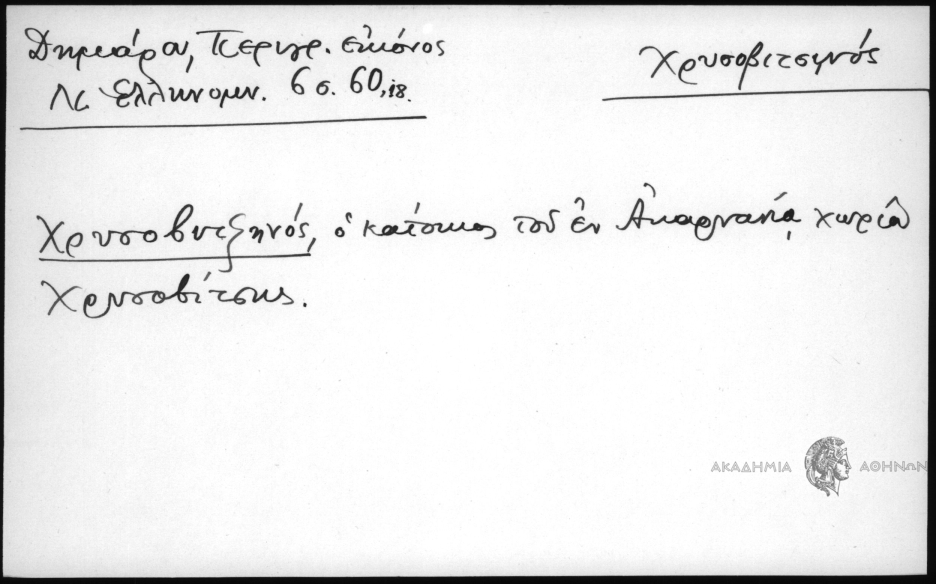 Δημάρου, Περιγρ. εἰκόνος
Λς Ἑλληνομν. 6 σ. 60,18.
Χρυσοβιτσηνός
Χρυσοβιτζηνός, ὁ κάτοικος τοῦ ἐν Ἀκαρνανίᾳ χωρίου
Χρυσοβίτσης.
ΑΚΑΔΗΜΙΑ ΑΘΗΝΩΝ